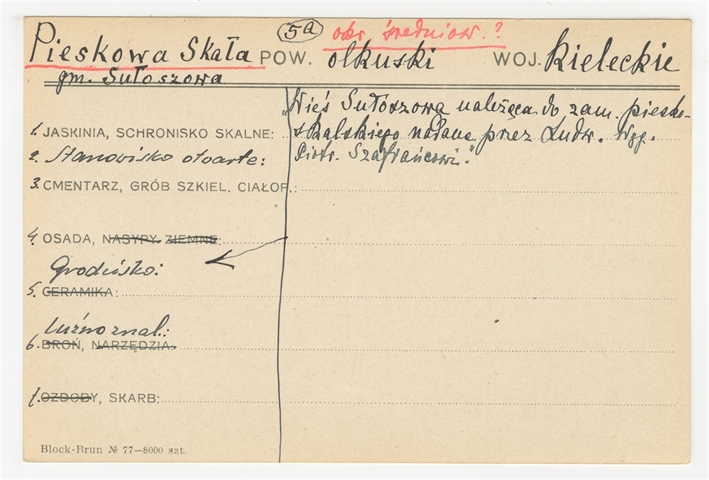 5a okr. średniow.?
Pieskowa Skała POW. olkuski WOJ. Kieleckie
gm. Sułoszowa
"Wieś Sułoszowa należąca do zam. piesko-
1. JASKINIA, SCHRONISKO SKALNE: skalskiego nadana przez Ludw. Węg.
2. Stanowisko otwarte: Piotr. Szafrańcowi."
3. CMENTARZ, GRÓB SZKIEL. CIAŁOP.:
4. OSADA, NASYPY ZIEMNE:
Grodzisko:
5. CERAMIKA:
Luźno znal.:
6. BROŃ, NARZĘDZIA:
7. OZDOBY, SKARB:
Block-Brun № 77—8000 szt.